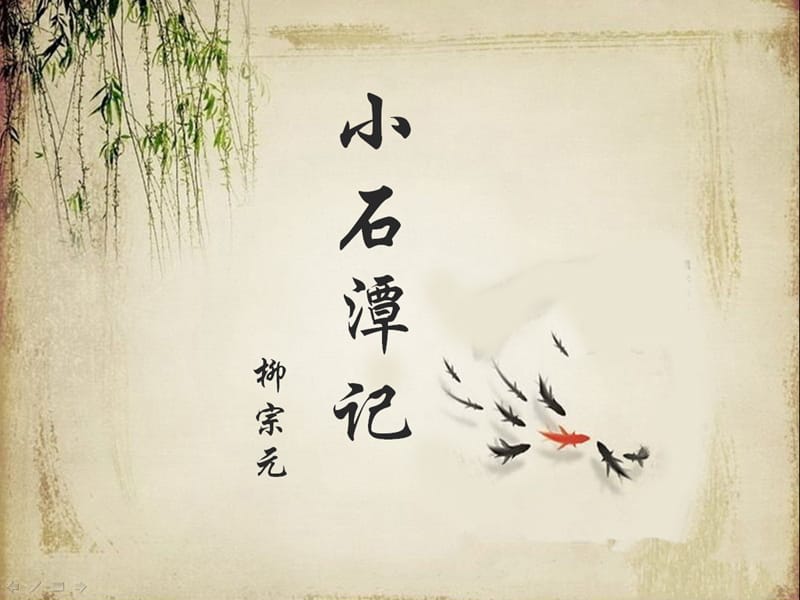 小石潭记
柳宗元